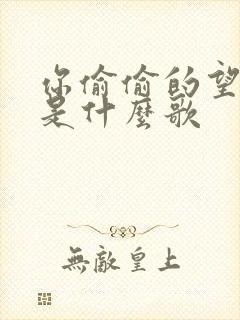 你偷偷的望
是什麼歌
無敵皇上